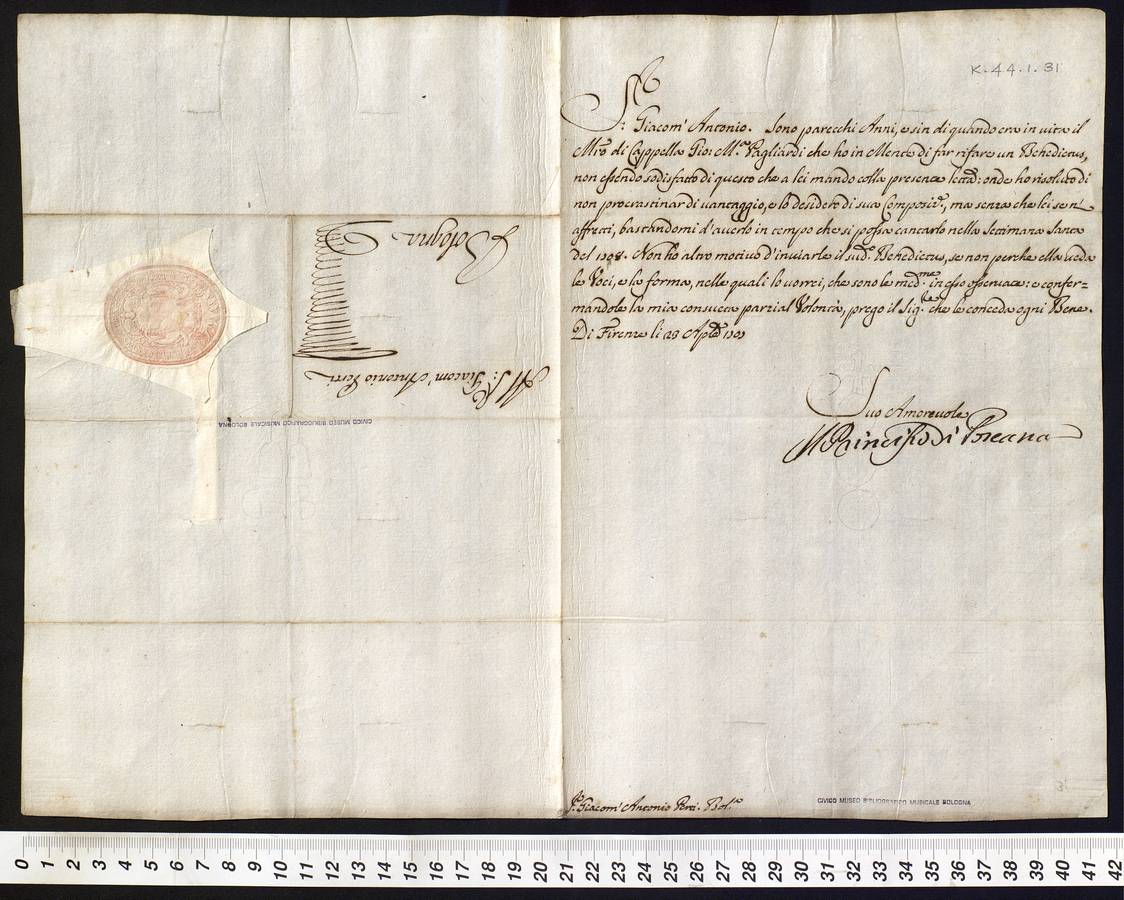 K.44.1.31
Sr: Giacom' Antonio. Sono parecchi Anni, e sin di quando era in vita il
Mro di Cappella Gio: Ma Pagliardi che ho in Mente di far rifare un Benedictus,
non essendo sodisfatto di questo che a lei mando colla presente lettā: onde ho risoluto di
non procrastinar di vantaggio, e lo desidero di sua Composize, ma senza che lei se n'
affreti, bastandomi d'averlo in tempo che si possa cantarlo nella Settimana Santa
del Non ho altro motivo d'inviarle il sudo Benedictus, se non perche ella veda
le Voci, e la forma, nelle quali lo vorrei, che sono le medme in esso osservate; e confer=
mandole la mia consueta parzial Volontà, prego il Sigre che le conceda ogni Bene.
Di Firenze li
Suo Amorevole
Il Principe di Toscana
Sr Giacom' Antonio Perti. Bolna
CIVICO MUSEO BIBLIOGRAFICO MUSICALE BOLOGNA
31
Al Sr: Giacom' Antonio Perti
Bologna
CIVICO MUSEO BIBLIOGRAFICO MUSICALE BOLOGNA
0 1 2 3 4 5 6 7 8 9 10 11 12 13 14 15 16 17 18 19 20 21 22 23 24 25 26 27 28 29 30 31 32 33 34 35 36 37 38 39 40 41 42